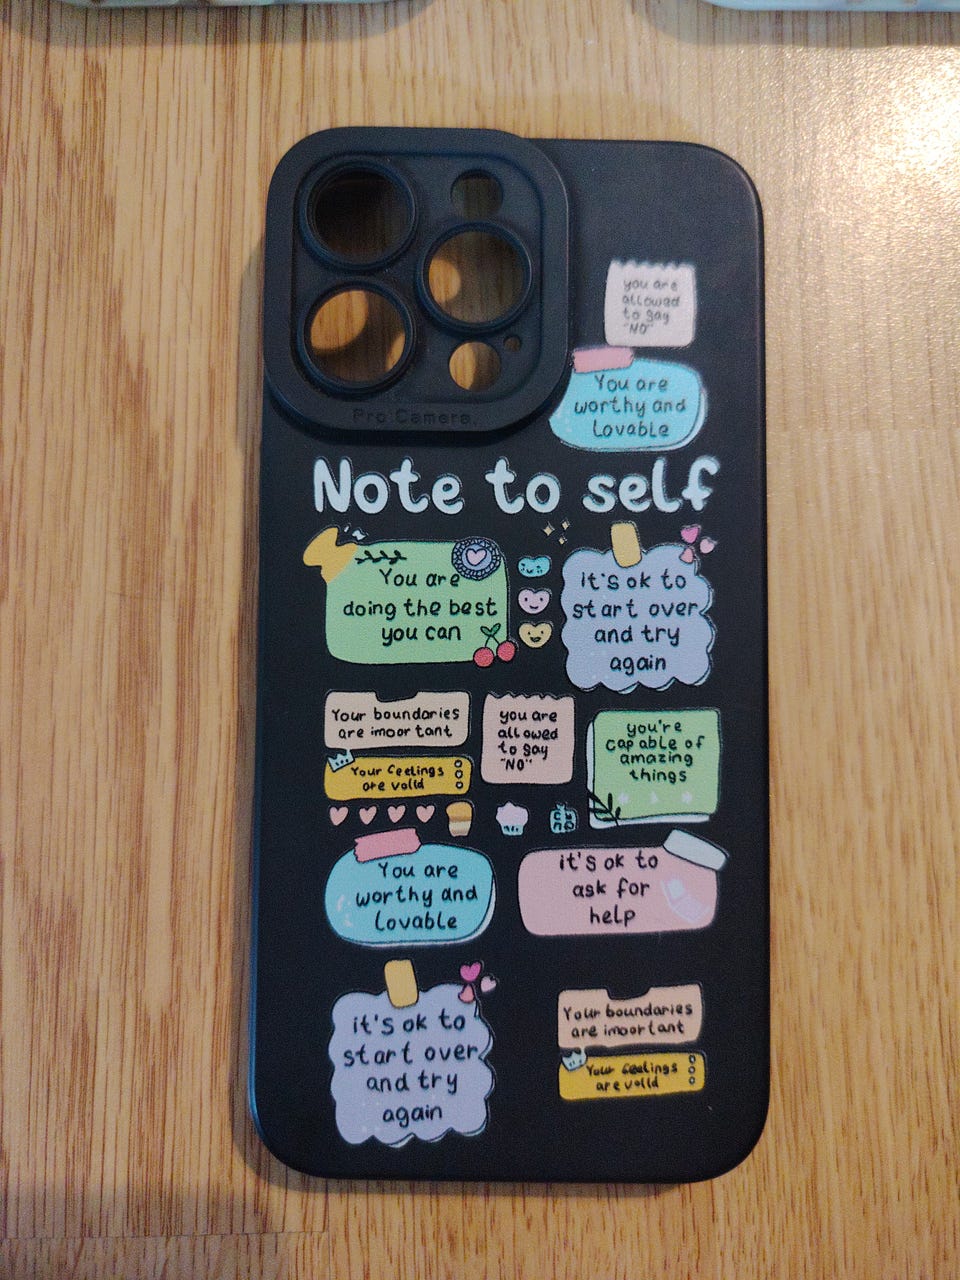 you are
allowed
to say
"NO"
You are
worthy and
Lovable
Pro Camera.
Note to self
You are
doing the best
you can
it's ok to
start over
and try
again
Your boundaries
are imoortant
Your feelings
are valid
you are
allowed
to say
"NO"
you're
capable of
amazing
things
You are
worthy and
Lovable
it's ok to
ask for
help
it's ok to
start over
and try
again
Your boundaries
are imoortant
Your feelings
are valid